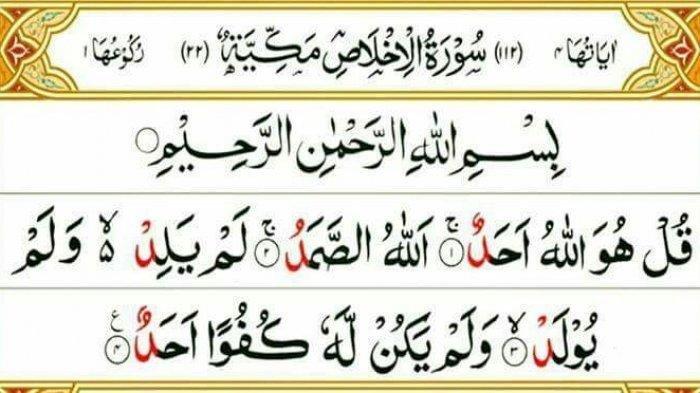 اٰيَاتُهَا ٤ (١١٢) سُوْرَةُ الْاِخْلَاصِ مَكِّيَّةٌ (٢٢) رُكُوْعُهَا ١
بِسْمِ اللهِ الرَّحْمٰنِ الرَّحِيْمِ ○
قُلْ هُوَ اللهُ اَحَدٌ ۚ ﴿١﴾ اَللهُ الصَّمَدُ ۚ ﴿٢﴾ لَمْ يَلِدْ ۙ٥ وَلَمْ
يُوْلَدْ ۙ ﴿٣﴾ وَلَمْ يَكُنْ لَّهٗ كُفُوًا اَحَدٌ ع ﴿٤﴾